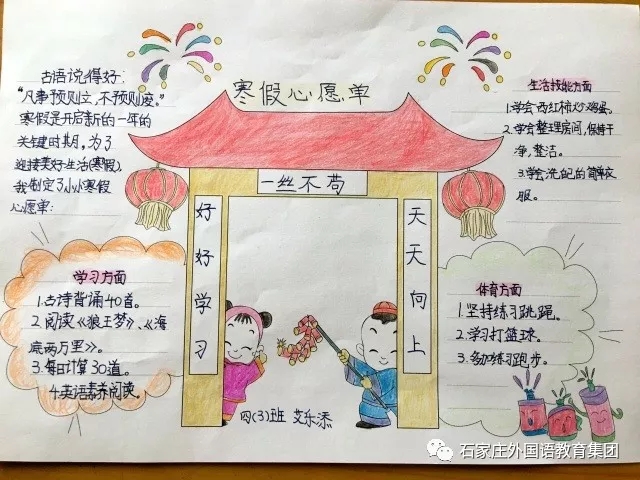 寒假心愿单
古语说得好:
“凡事预则立,不预则废。”
寒假是开启新的一年的
关键时期,为了
迎接美好生活(寒假),
我制定了小小寒假
心愿单:
生活技能方面
1.学会西红柿炒鸡蛋。
2.学会整理房间,保持干
净,整洁。
3.学会洗自己的简单衣
服。
一丝不苟
好好学习
天天向上
学习方面
1.古诗背诵40首。
2.阅读《狼王梦》、《海
底两万里》。
3.每日计算30道。
4.英语素养阅读。
体育方面
1.坚持练习跳绳。
2.学习打篮球。
3.多加练习跑步。
四(3)班 艾乐添
石家庄外国语教育集团